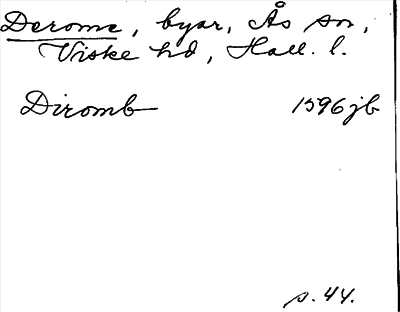 Derome, byar, Ås sn,
Viske hd, Hall. l.
Diromb 1596 jb
s. 44.